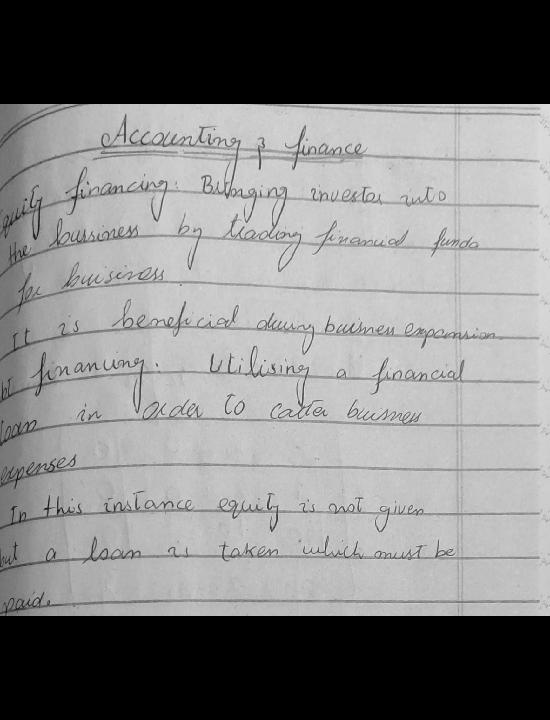 Accounting & finance
quity financing: Bringing investor into
the bussiness by trading financial funds
for buisiness.
It is beneficial during business expansion
bt financing. Utilising a financial
loan in order to catter buisness
expenses
In this instance equity is not given
but a loan is taken which must be
paid.